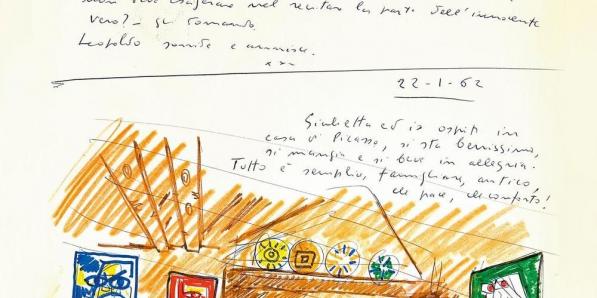 esagerare nel recitar la parte dell'innocente
vero? - gli domando.
Leopoldo sorride e ammicca.
22-1-62
Giulietta ed io ospiti in
casa di Picasso, si sta benissimo,
si mangia e si beve in allegria.
Tutto è semplice, famigliare, antico,
che pace, che conforto!